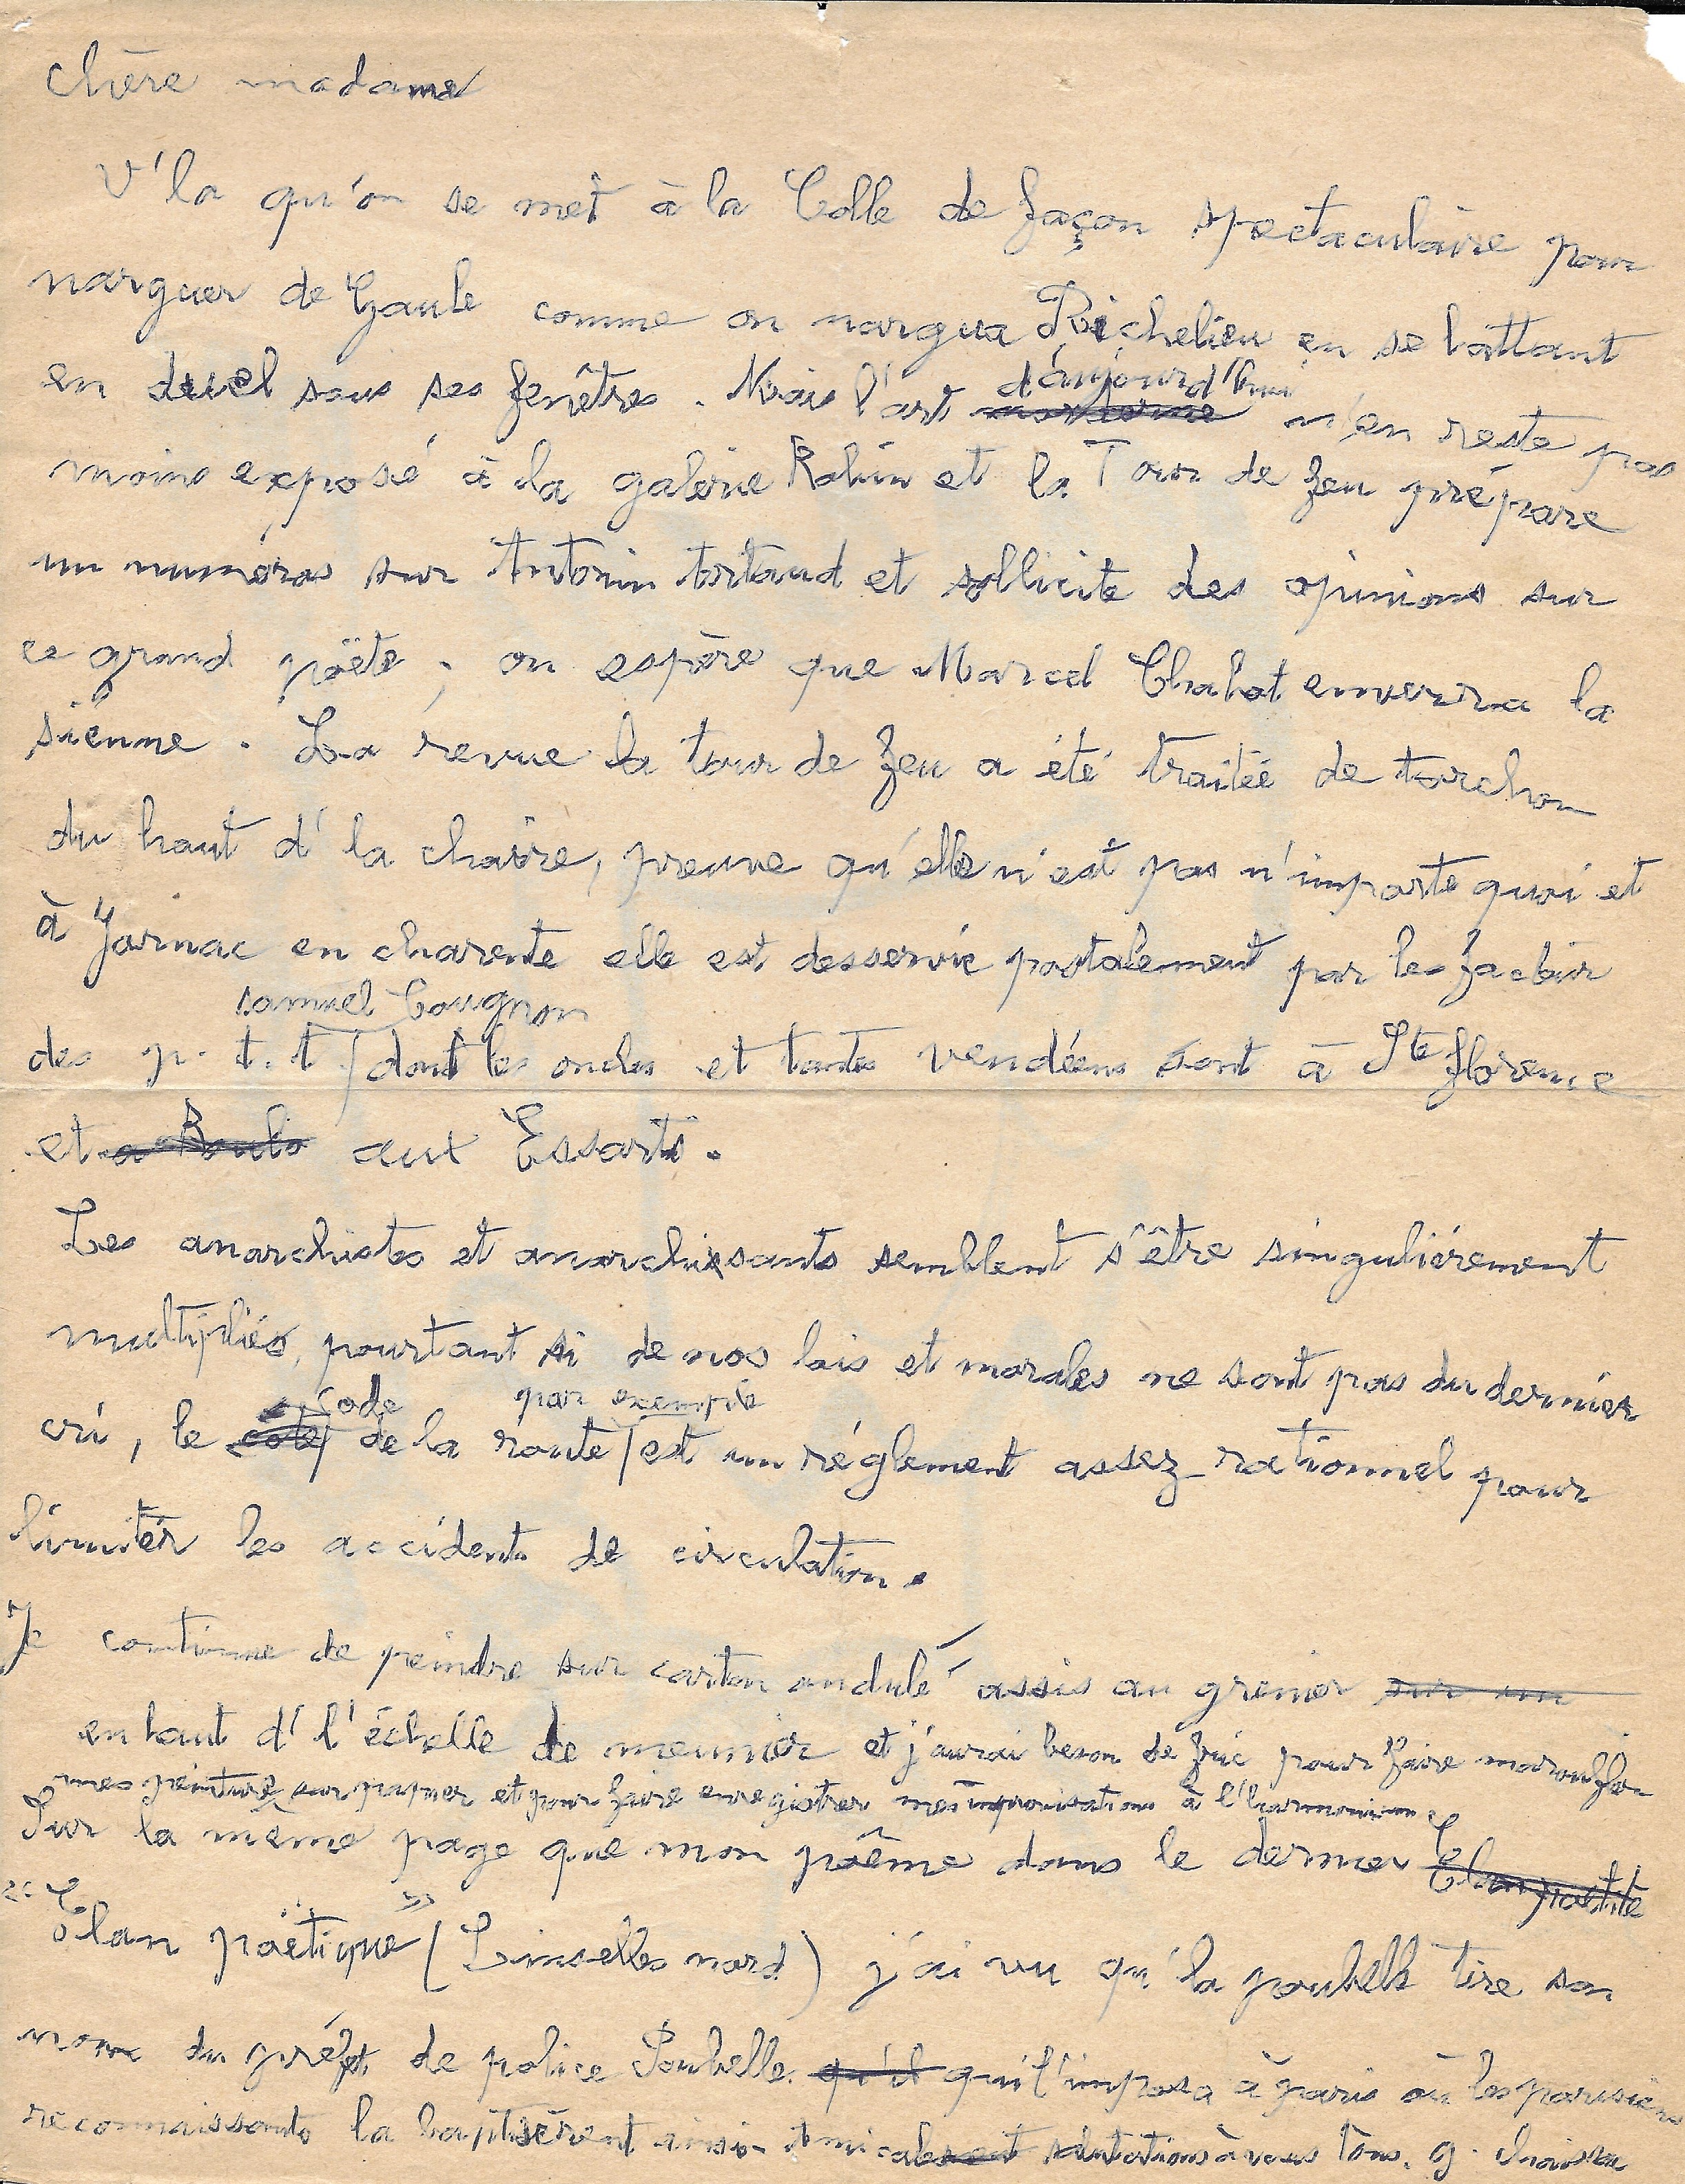 Chère madame
V'la qu'on se met à la Colle de façon spectaculaire pour
narguer de Gaule comme on nargua Richelieu en se battant
en duel sous ses fenêtres. Mais l'art d'aujourd'hui n'en reste pas
moins exposé à la galerie et la Tour de feu prépare
un numéros sur Antonin Artaud et sollicite des opinions sur
ce grand poëte ; on espère que Marcel Chabot enverra la
sienne. La revue la tour de feu a été traitée de torchon
du haut d' la chaire, preuve qu'elle n'est pas n'importe quoi et
à Jarnac en charente elle est desservie postalement par le facteur
samuel Cougnon
des p. t. t / dont les oncles et tantes vendéens sont à Ste florence
et aux Essarts.
Les anarchistes et anarchisants semblent s'être singuliérement
multipliés, pourtant si de nos lois et morales ne sont pas du dernier
code par exemple
cri, le de la route / est un réglement assez rationnel pour
limiter les accidents de circulation.
Je continue de peindre sur carton ondulé assis au grenier sur un
en haut d' l'échelle de meunier et j'aurai besoin de fric pour faire maroufler
mes peinture sur papier et pour faire enregistrer mes improvisations à l'harmonium
Sur la même page que mon poême dans le dernier
"Élan poëtique" (Linselles nord) j'ai vu qu' la poubelle tire son
nom du préfet de police Poubelle qu'il qui l'imposa à paris où les parisiens
reconnaissants la baptisèrent ainsi - Amicales salutations à vous tous. g. chaissac